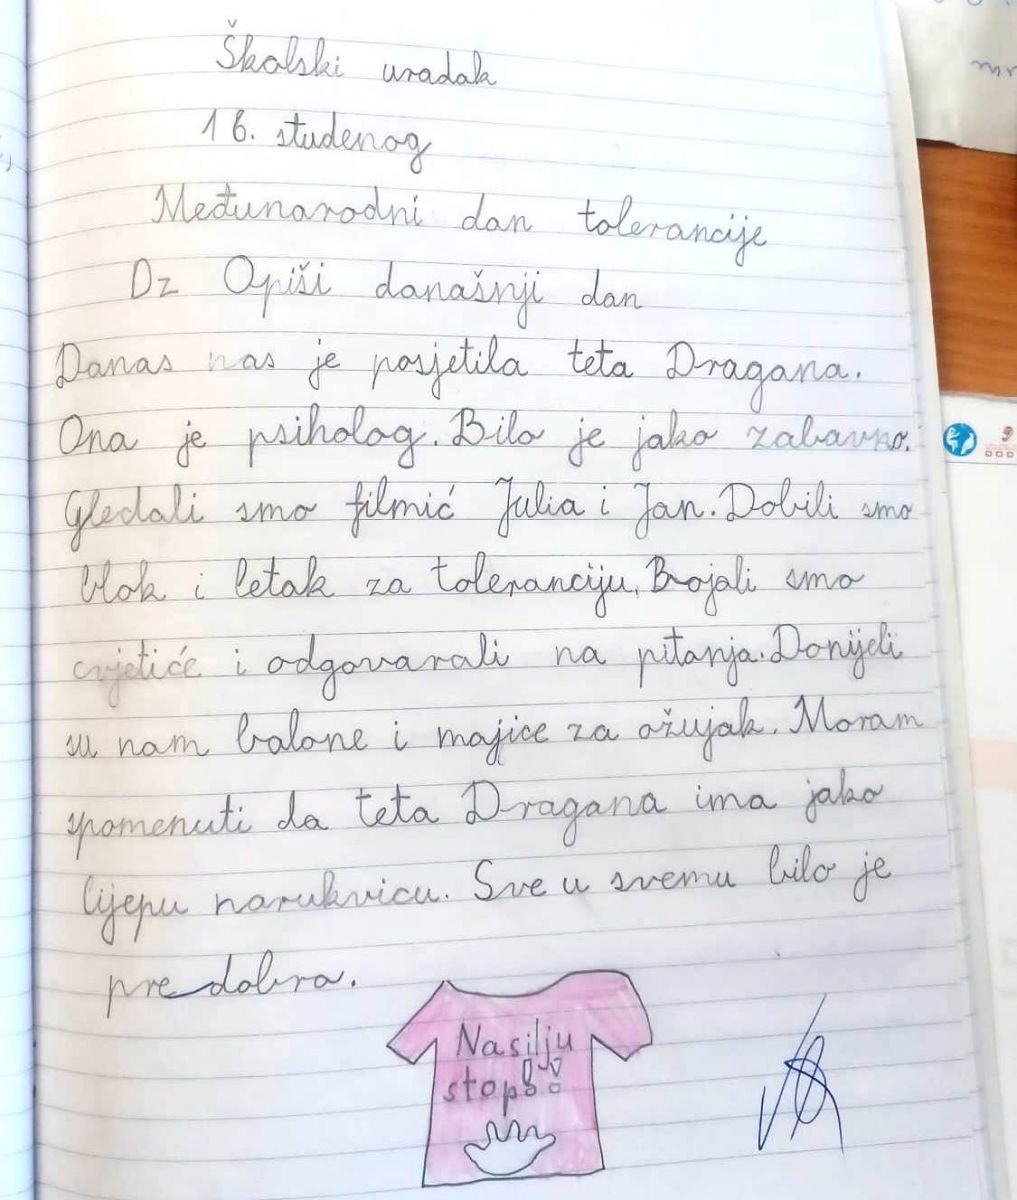 Školski uradak
16. studenog
Međunarodni dan tolerancije
Dz Opiši današnji dan
Danas nas je posjetila teta Dragana.
Ona je psiholog. Bilo je jako zabavno.
Gledali smo filmić Julia i Jan. Dobili smo
blok i letak za toleranciju. Bojali smo
cvjetiće i odgovarali na pitanja. Donijeli
su nam balone i majice za ožujak. Moram
spomenuti da teta Dragana ima jako
lijepu narukvicu. Sve u svemu bilo je
predobro.
Nasilju
stop!!!